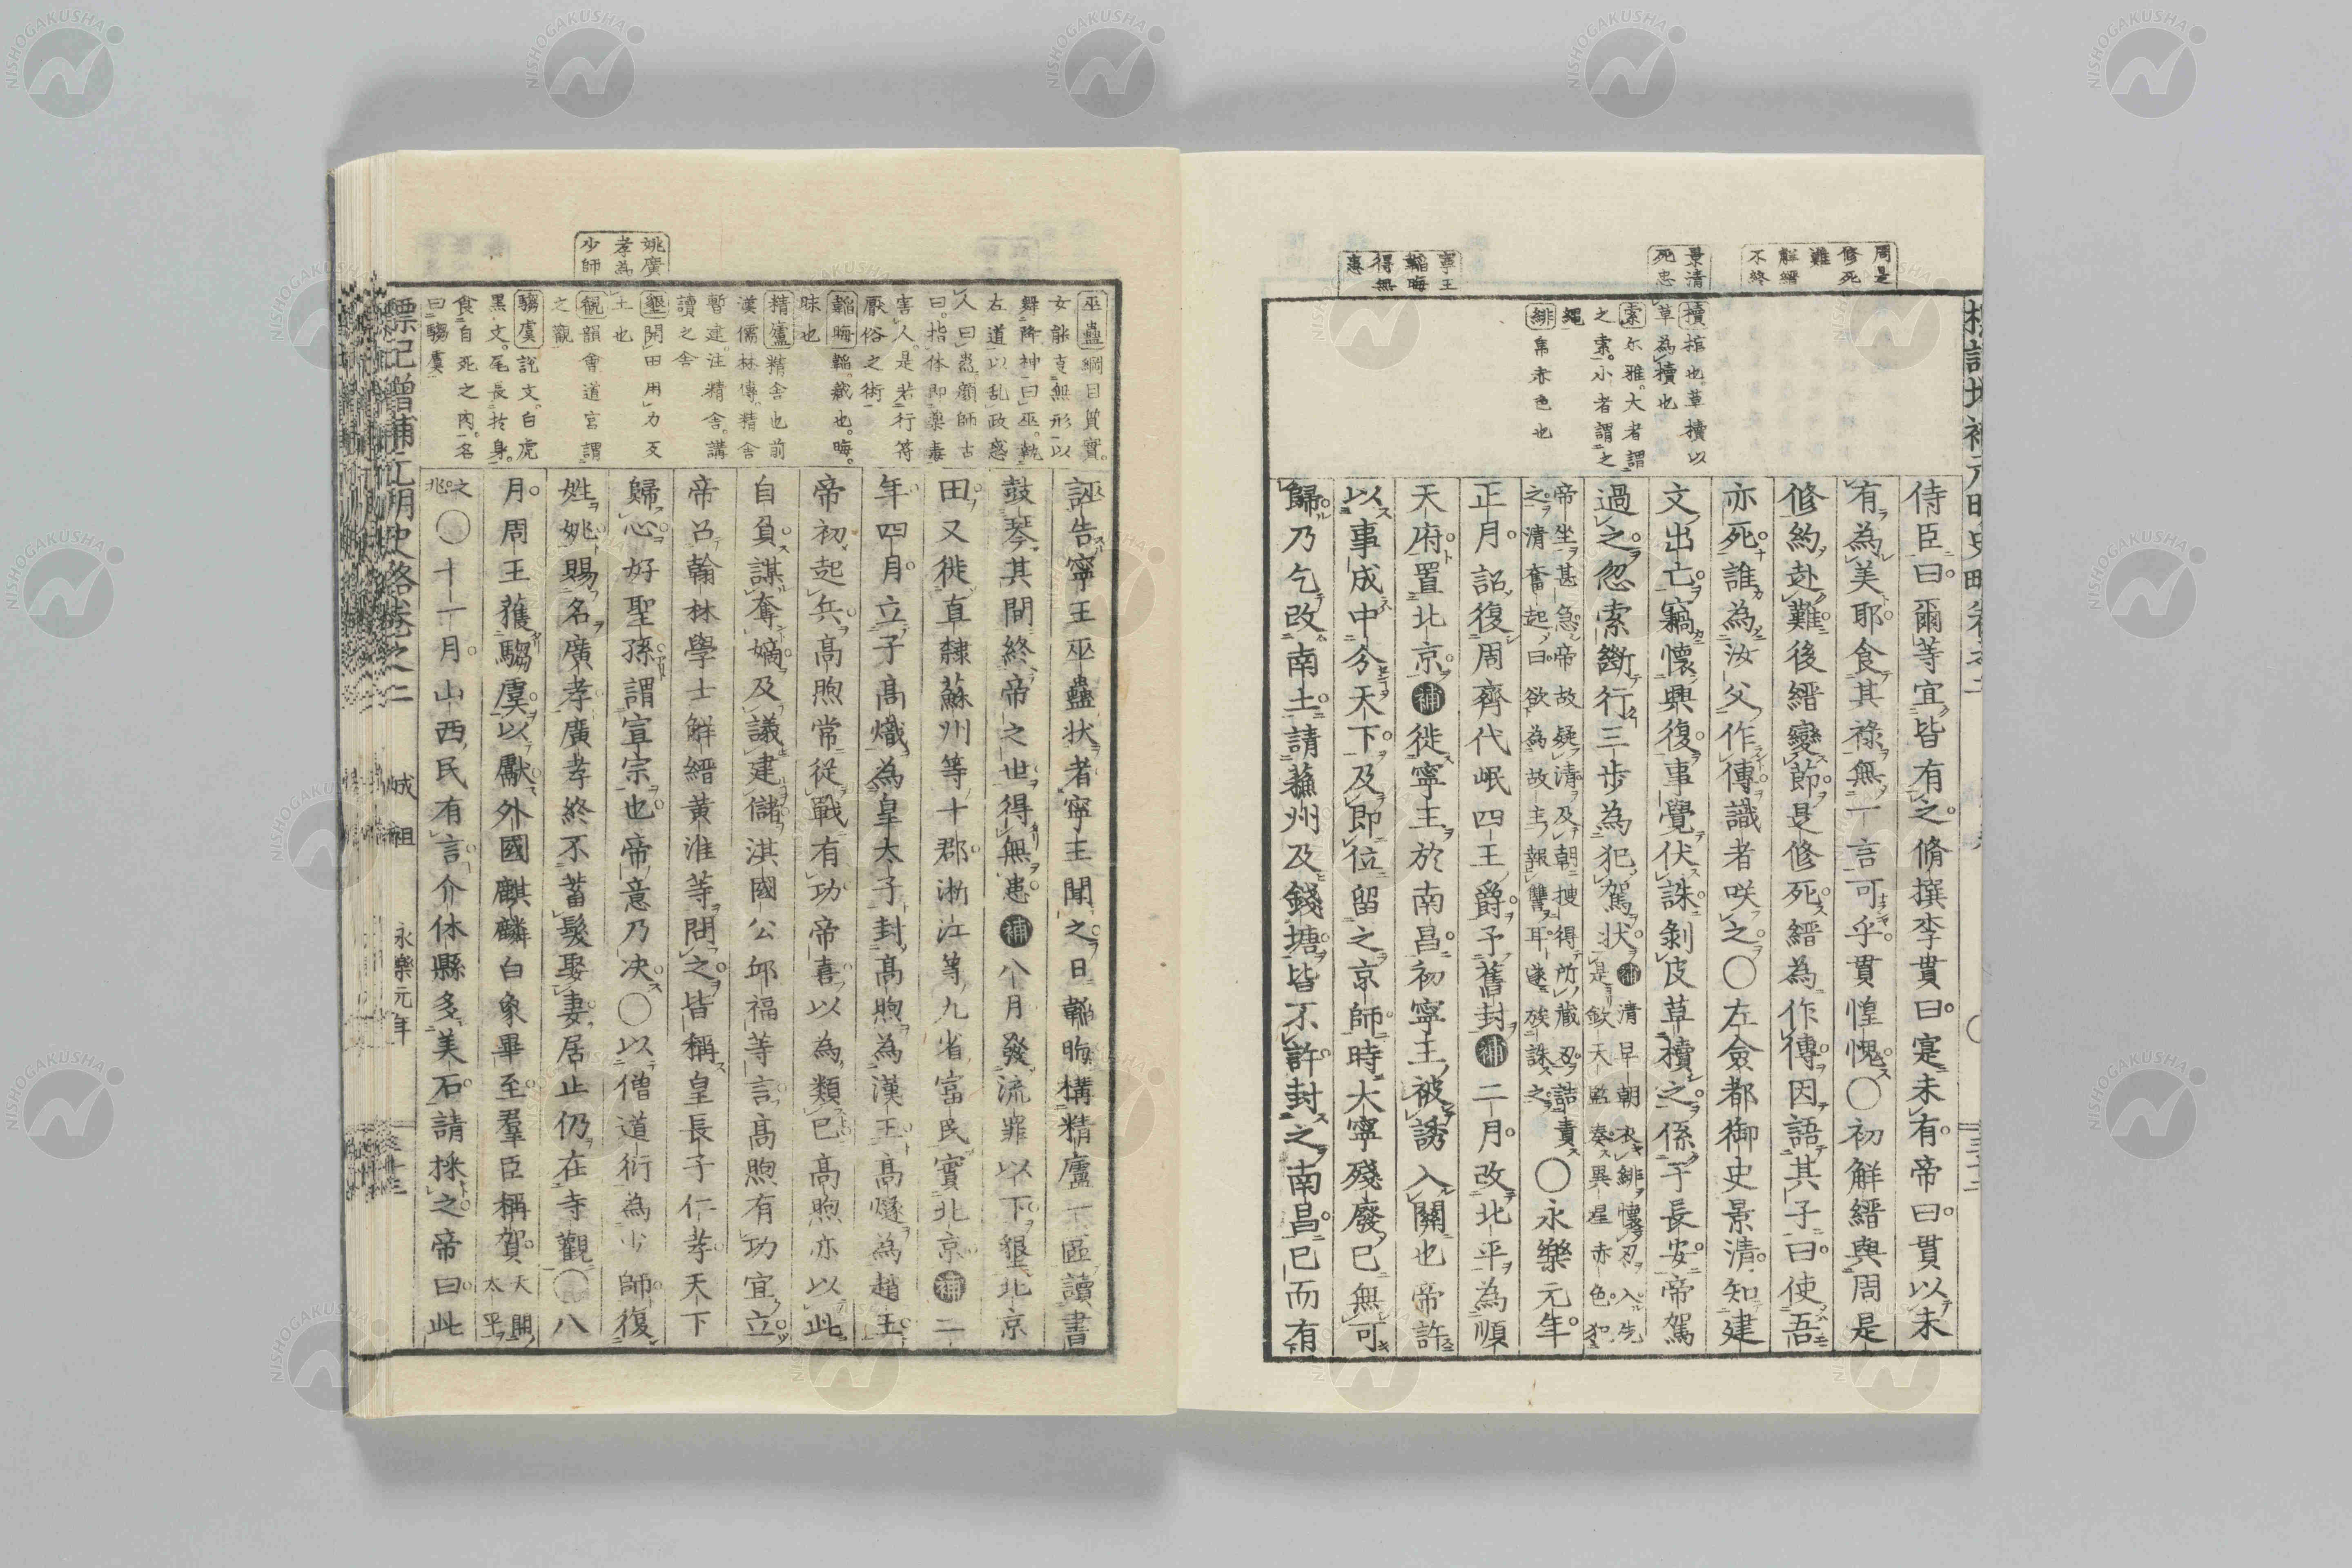 周是
修死
難
解縉
不終
景清
死忠
寧王
韜晦
得無
恙
櫝棺也草櫝以
草為櫝也
索尓雅。大者謂
之索。小者謂之
繩
緋帛赤色也
侍臣曰。爾等宜皆有之。脩撰李貫曰。寔未有。帝曰。貫以未
有為美耶。食其祿無一言可乎。貫惶愧〇初解縉與周是
修約赴難後縉變節是修死縉為作傳因語其子曰。使吾
亦死誰為汝父作傳識者咲之〇左僉都御史景清知建
文出亡。竊懷興復事覺伏誅剝皮草櫝之係于長安。帝駕
過之。忽索斷行三步為犯駕狀。補清早朝衣緋懷刃入先
是欽天監奏異星赤色犯
帝坐甚急帝故疑清及朝搜得所藏刃詰責
之。清奮起曰。欲為故主報讐耳。遂族誅之。〇永樂元年。
正月。詔復周齊代岷四王爵。予舊封補二月。改北平為順
天府置北京。補徙寧王於南昌。初寧王被誘入關也帝許
以事成中分天下。及即位留之京師。時大寧殘廢已無可
歸乃乞改南土。請蘇州及錢塘皆不許封之南昌。已而有
標記增補元明史略卷之二
姚廣
孝為
少師
巫蠱綱目質實。
女能㕝無形以
舞降神曰巫。執
左道以乱政惑
人曰蠱。顔師古
曰。指体即藥毒
害人。是若行符
厭俗之術
韜晦韜。藏也。晦。
昧也
精廬精舍也前
漢儒林傳。精舍
暫建。注精舍。講
讀之舍
墾開田用力反
土也
觀韻會道宮謂
之觀
騶虞說文。白虎
黑文。尾長於身。
食自死之肉。名
曰騶虞
誣告寧王巫蠱狀者寧王聞之。日韜晦構精廬一區讀書
鼓琴其間終帝之世得無恙補八月發流罪以下墾北京
田。又徙直隸蘇州等十郡浙江等九省富民實北京補二
年四月。立子高熾為皇太子封高煦為漢王高燧為趙王
帝初起兵高煦常從戰有功帝喜以為類已高煦亦以此
自負謀奪嫡及議建儲淇國公邱福等言高煦有功宜立
帝召翰林學士解縉黃淮等問之皆稱皇長子仁孝天下
歸心好聖孫謂宣宗也帝意乃决〇以僧道衍為少師復
姓姚賜名廣孝廣孝終不蓄髮娶妻居止仍在寺觀〇八
月。周王獲騶虞以獻外國麒麟白象畢至羣臣稱賀天開
太平
之
兆〇十一月。山西民有言介休縣多美石請採之帝曰。此
標記增補元明史略卷之二 成祖 永樂元年 三十三